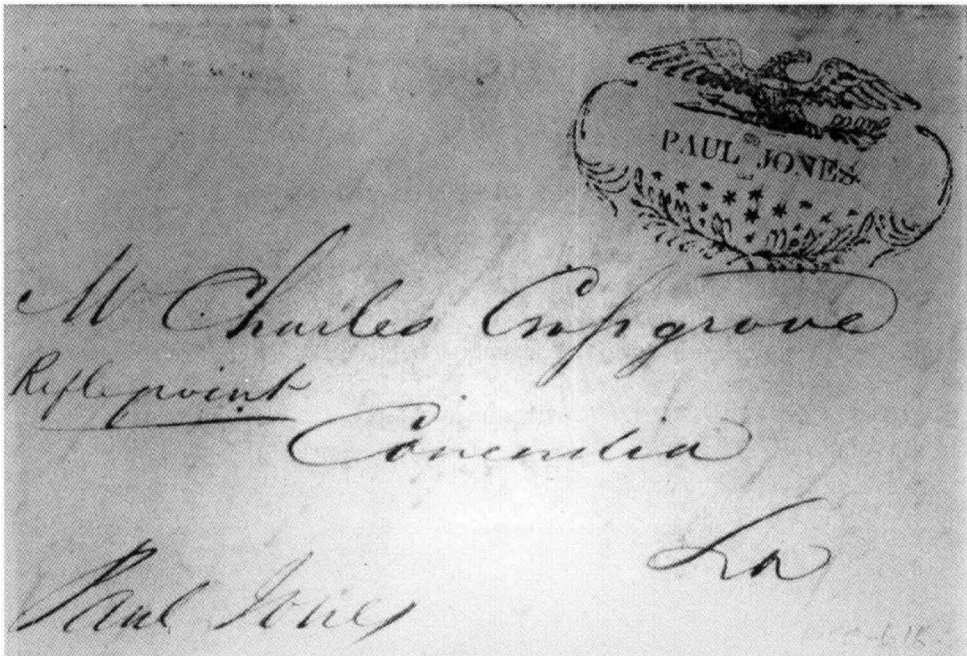 PAUL JONES.
Mr Charles
Riflepoint
Concordia
La
Paul Jones